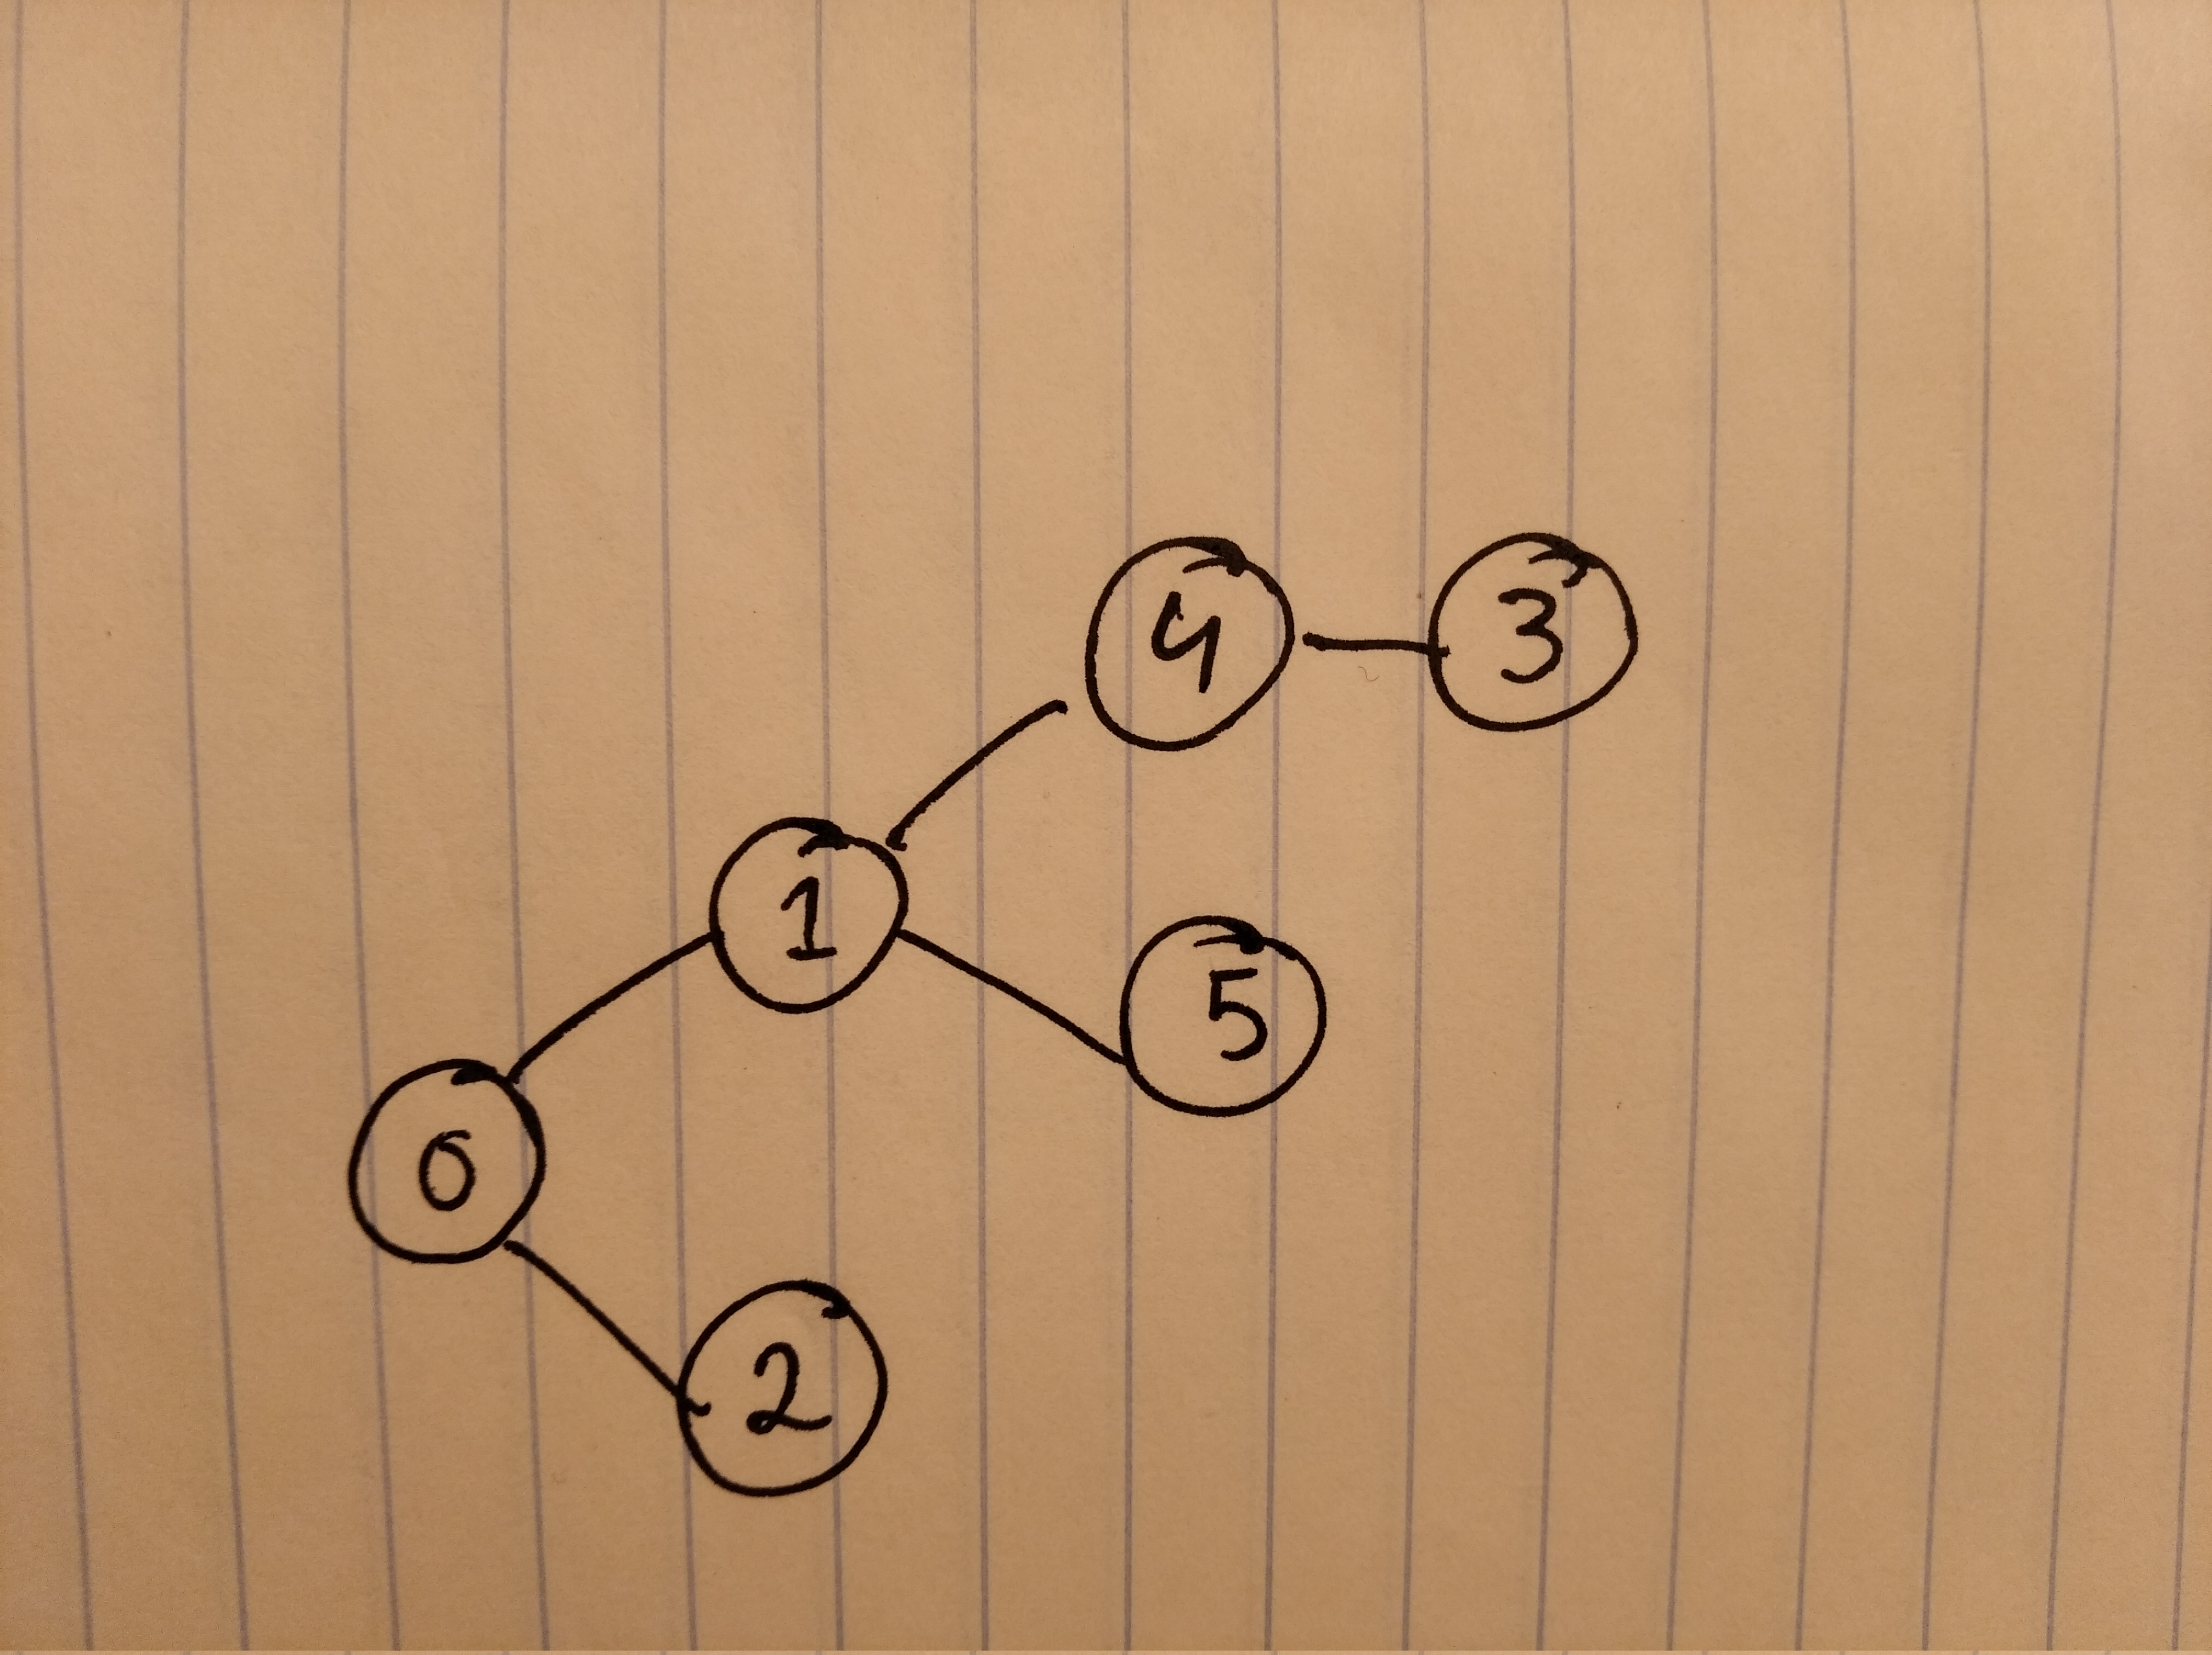 4 3
1
5
0
2